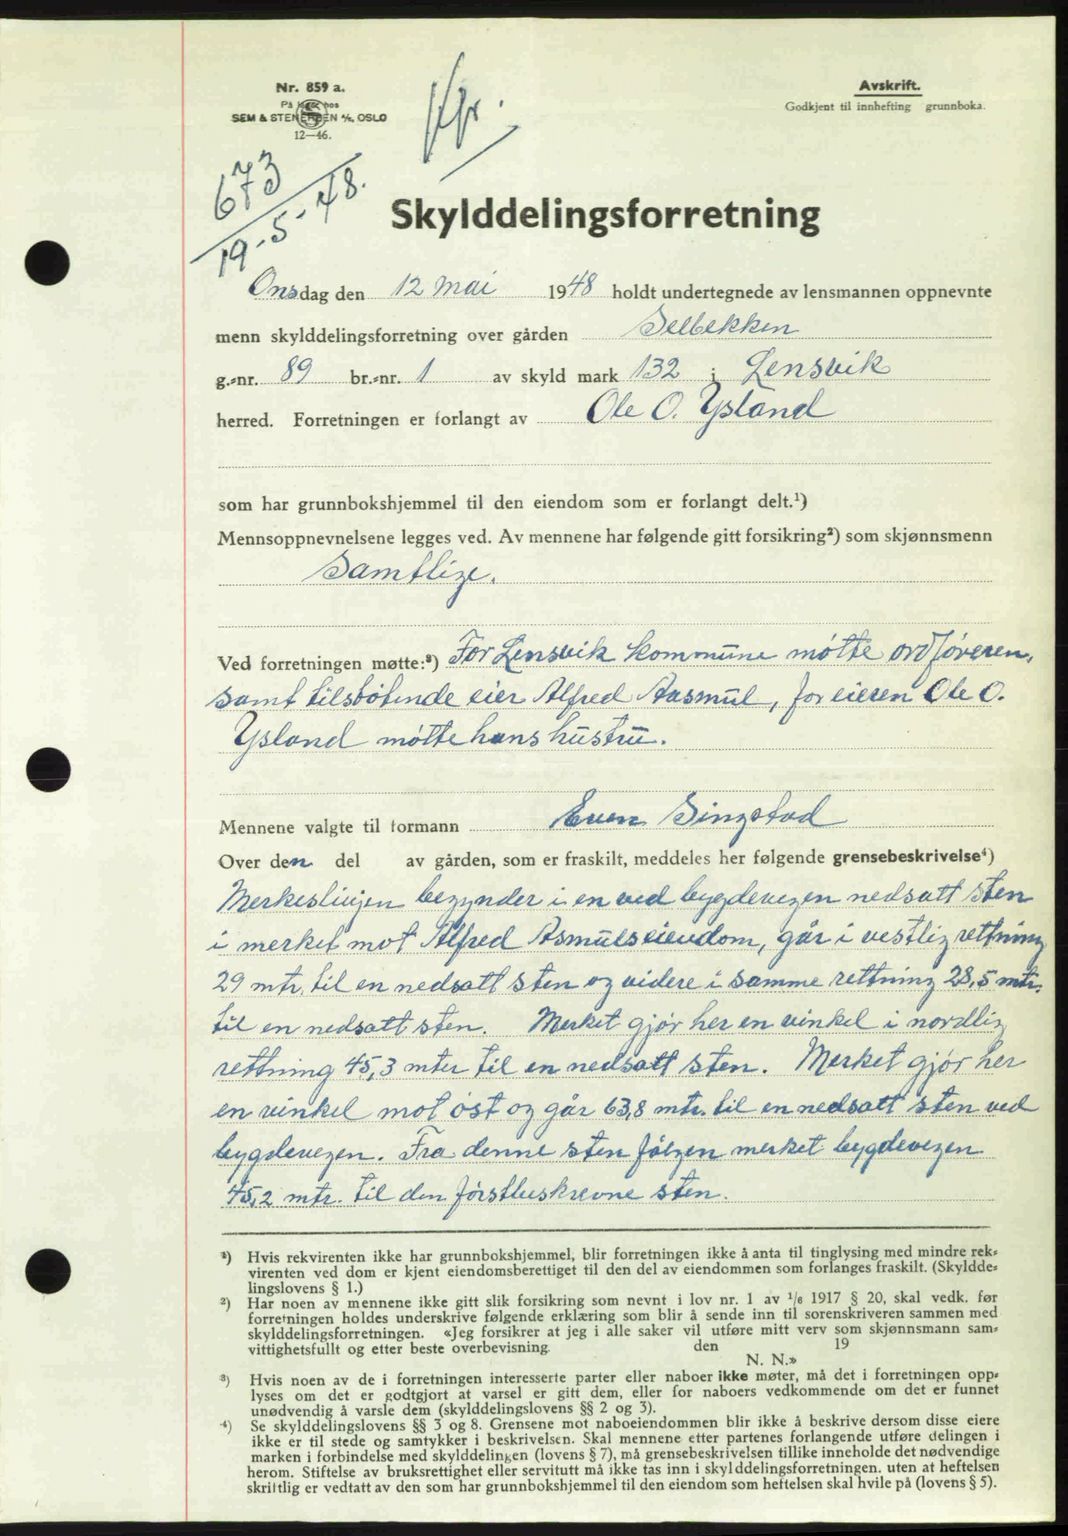 Nr. 859 a.
På lager hos
SEM & STENERSEN A/S, OSLO
12—46.
Avskrift.
Godkjent til innhefting grunnboka.
673
19-5-48.
Skylddelingsforretning
Onsdag den 12 mai 1948 holdt undertegnede av lensmannen oppnevnte
menn skylddelingsforretning over gården Selbekken
g.-nr. 89 br.-nr. 1 av skyld mark 132 i Lensvik
herred. Forretningen er forlangt av Ole O. Ysland
som har grunnbokshjemmel til den eiendom som er forlangt delt.¹)
Mennsoppnevnelsene legges ved. Av mennene har følgende gitt forsikring²) som skjønnsmenn
Samtlige.
Ved forretningen møtte:³) For Lensvik kommune møtte ordføreren,
samt tilstøtende eier Alfred Aasmul, for eieren Ole O.
Ysland møtte hans hustru.
Mennene valgte til formann Even Singstad
Over den del av gården, som er fraskilt, meddeles her følgende grensebeskrivelse⁴)
Merkeslinjen begynder i en ved bygdevegen nedsatt sten
i merket mot Alfred Asmuls eiendom, går i vestlig rettning
29 mtr. til en nedsatt sten og videre i samme rettning 28,5 mtr.
til en nedsatt sten. Merket gjør her en vinkel i nordlig
rettning 45,3 mter til en nedsatt sten. Merket gjør her
en vinkel mot øst og går 63,8 mtr. til en nedsatt sten ved
bygdevegen. Fra denne sten følgen merket bygdevegen
45,2 mtr. til den førstbeskrevne sten.
¹) Hvis rekvirenten ikke har grunnbokshjemmel, blir forretningen ikke å anta til tinglysing med mindre rek-
virenten ved dom er kjent eiendomsberettiget til den del av eiendommen som forlanges fraskilt. (Skyldde-
lingslovens § 1.)
²) Har noen av mennene ikke gitt slik forsikring som nevnt i lov nr. 1 av ¹/6 1917 § 20, skal vedk. før
forretningen holdes underskrive følgende erklæring som blir å sende inn til sorenskriveren sammen med
skylddelingsforretningen. «Jeg forsikrer at jeg i alle saker vil utføre mitt verv som skjønnsmann sam-
vittighetsfullt og etter beste overbevisning. den 19
N. N.»
³) Hvis noen av de i forretningen interesserte parter eller naboer ikke møter, må det i forretningen opp-
lyses om det er godtgjort at varsel er gitt dem, eller for naboers vedkommende om det er funnet
unødvendig å varsle dem (skylddelingslovens §§ 2 og 3).
⁴) Se skylddelingslovens §§ 3 og 8. Grensene mot naboeiendommen blir ikke å beskrive dersom disse eiere
ikke er til stede og samtykker i beskrivelsen. Skal mennene etter partenes forlangende utføre delingen i
marken i forbindelse med skylddelingen (lovens § 7), må grensebeskrivelsen tillike inneholde det nødvendige
herom. Stiftelse av bruksrettighet eller servitutt må ikke tas inn i skylddelingsforretningen, uten at heftelsen
skriftlig er vedtatt av den som har grunnbokshjemmel til den eiendom som heftelsen skal hvile på (lovens § 5).